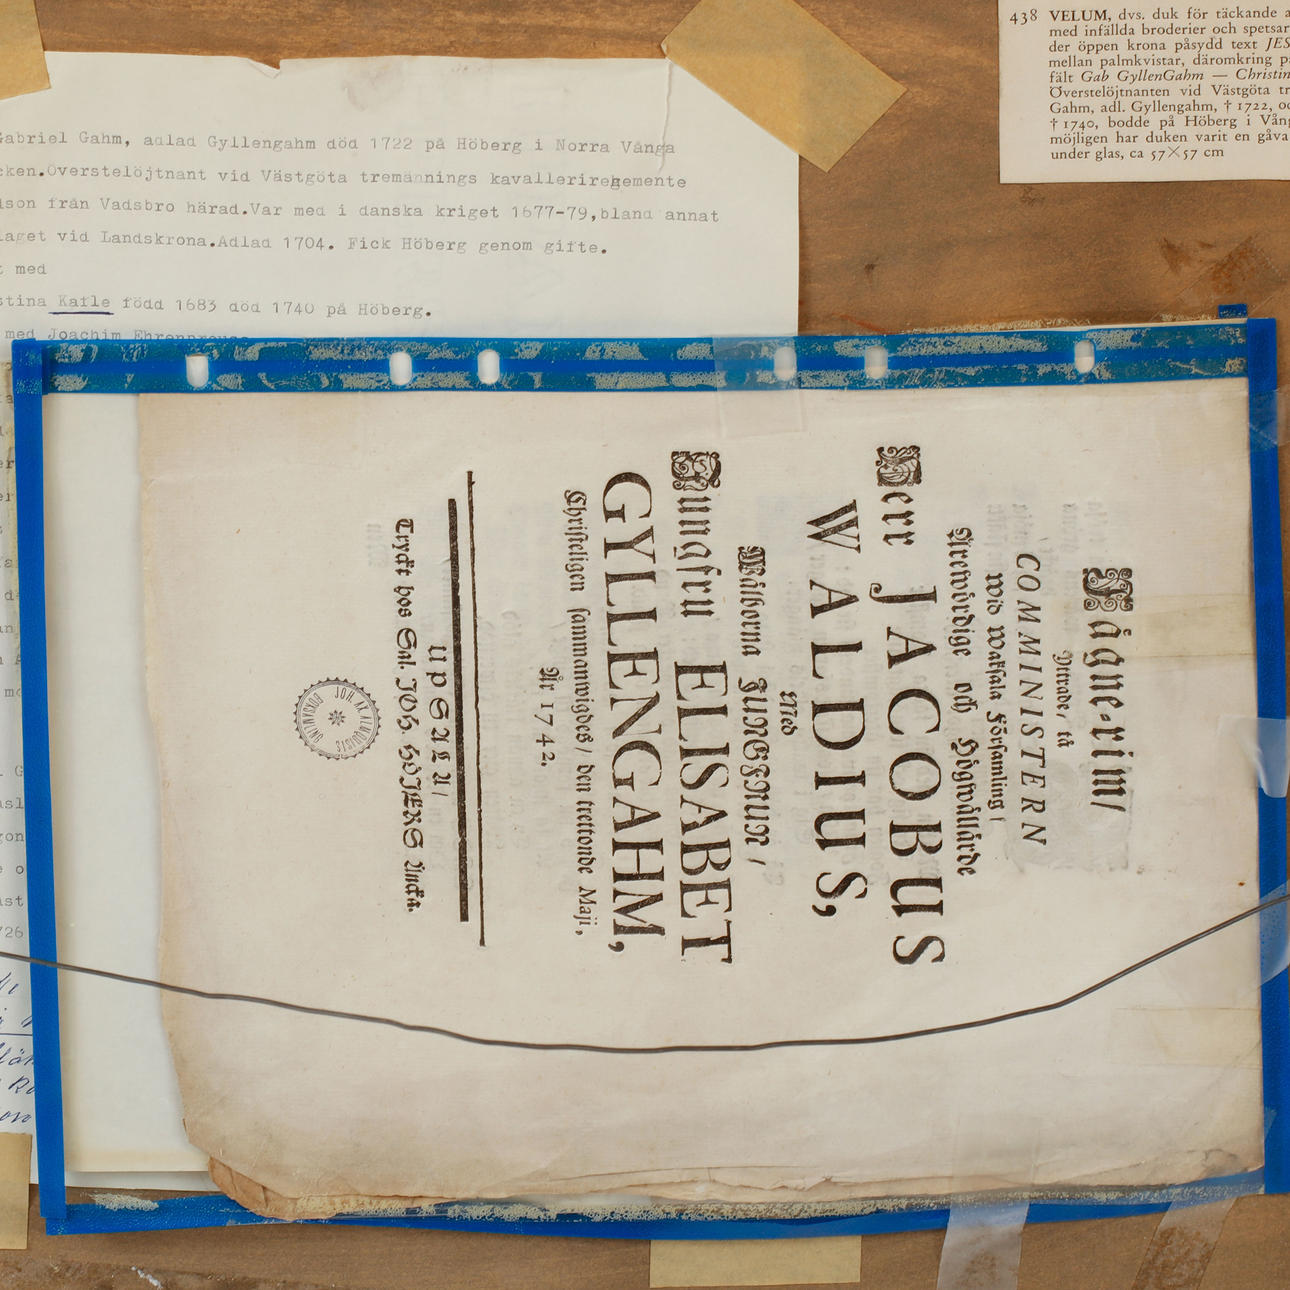 Gabriel Gahm, adlad Gyllengahm död 1722 på Höberg i Norra Vånga
cken.Överstelöjtnant vid Västgöta tremännings kavalleriregemente
lson från Vadsbro härad.Var med i danska kriget 1677-79,bland annat
laget vid Landskrona.Adlad 1704. Fick Höberg genom gifte.
t med
stina Kafle född 1683 död 1740 på Höberg.
med Joachim Ehrenpreus
438 VELUM, dvs. duk för täckande a
med infällda broderier och spetsar
der öppen krona påsydd text JES
mellan palmkvistar, däromkring p
fält Gab GyllenGahm — Christin
Överstelöjtnanten vid Västgöta tr
Gahm, adl. Gyllengahm, † 1722, oc
† 1740, bodde på Höberg i Vång
möjligen har duken varit en gåva
under glas, ca 57×57 cm
Fägne-rim/
Yttrade/ tå
COMMINISTERN
Wid Waksala Församling/
Ärewördige och Högwällärde
Herr JACOBUS
WALDIUS,
Med
Wälborna JUNGFRUN/
Jungfru ELISABET
GYLLENGAHM,
Christeligen sammanwigdes/ den trettonde Maji,
År 1742.
UPSALA/
Tryckt hos Sal. JOH. HÖJERS Äncka.
JOH. AX. ALMQUISTS
BOKSAMLING
726